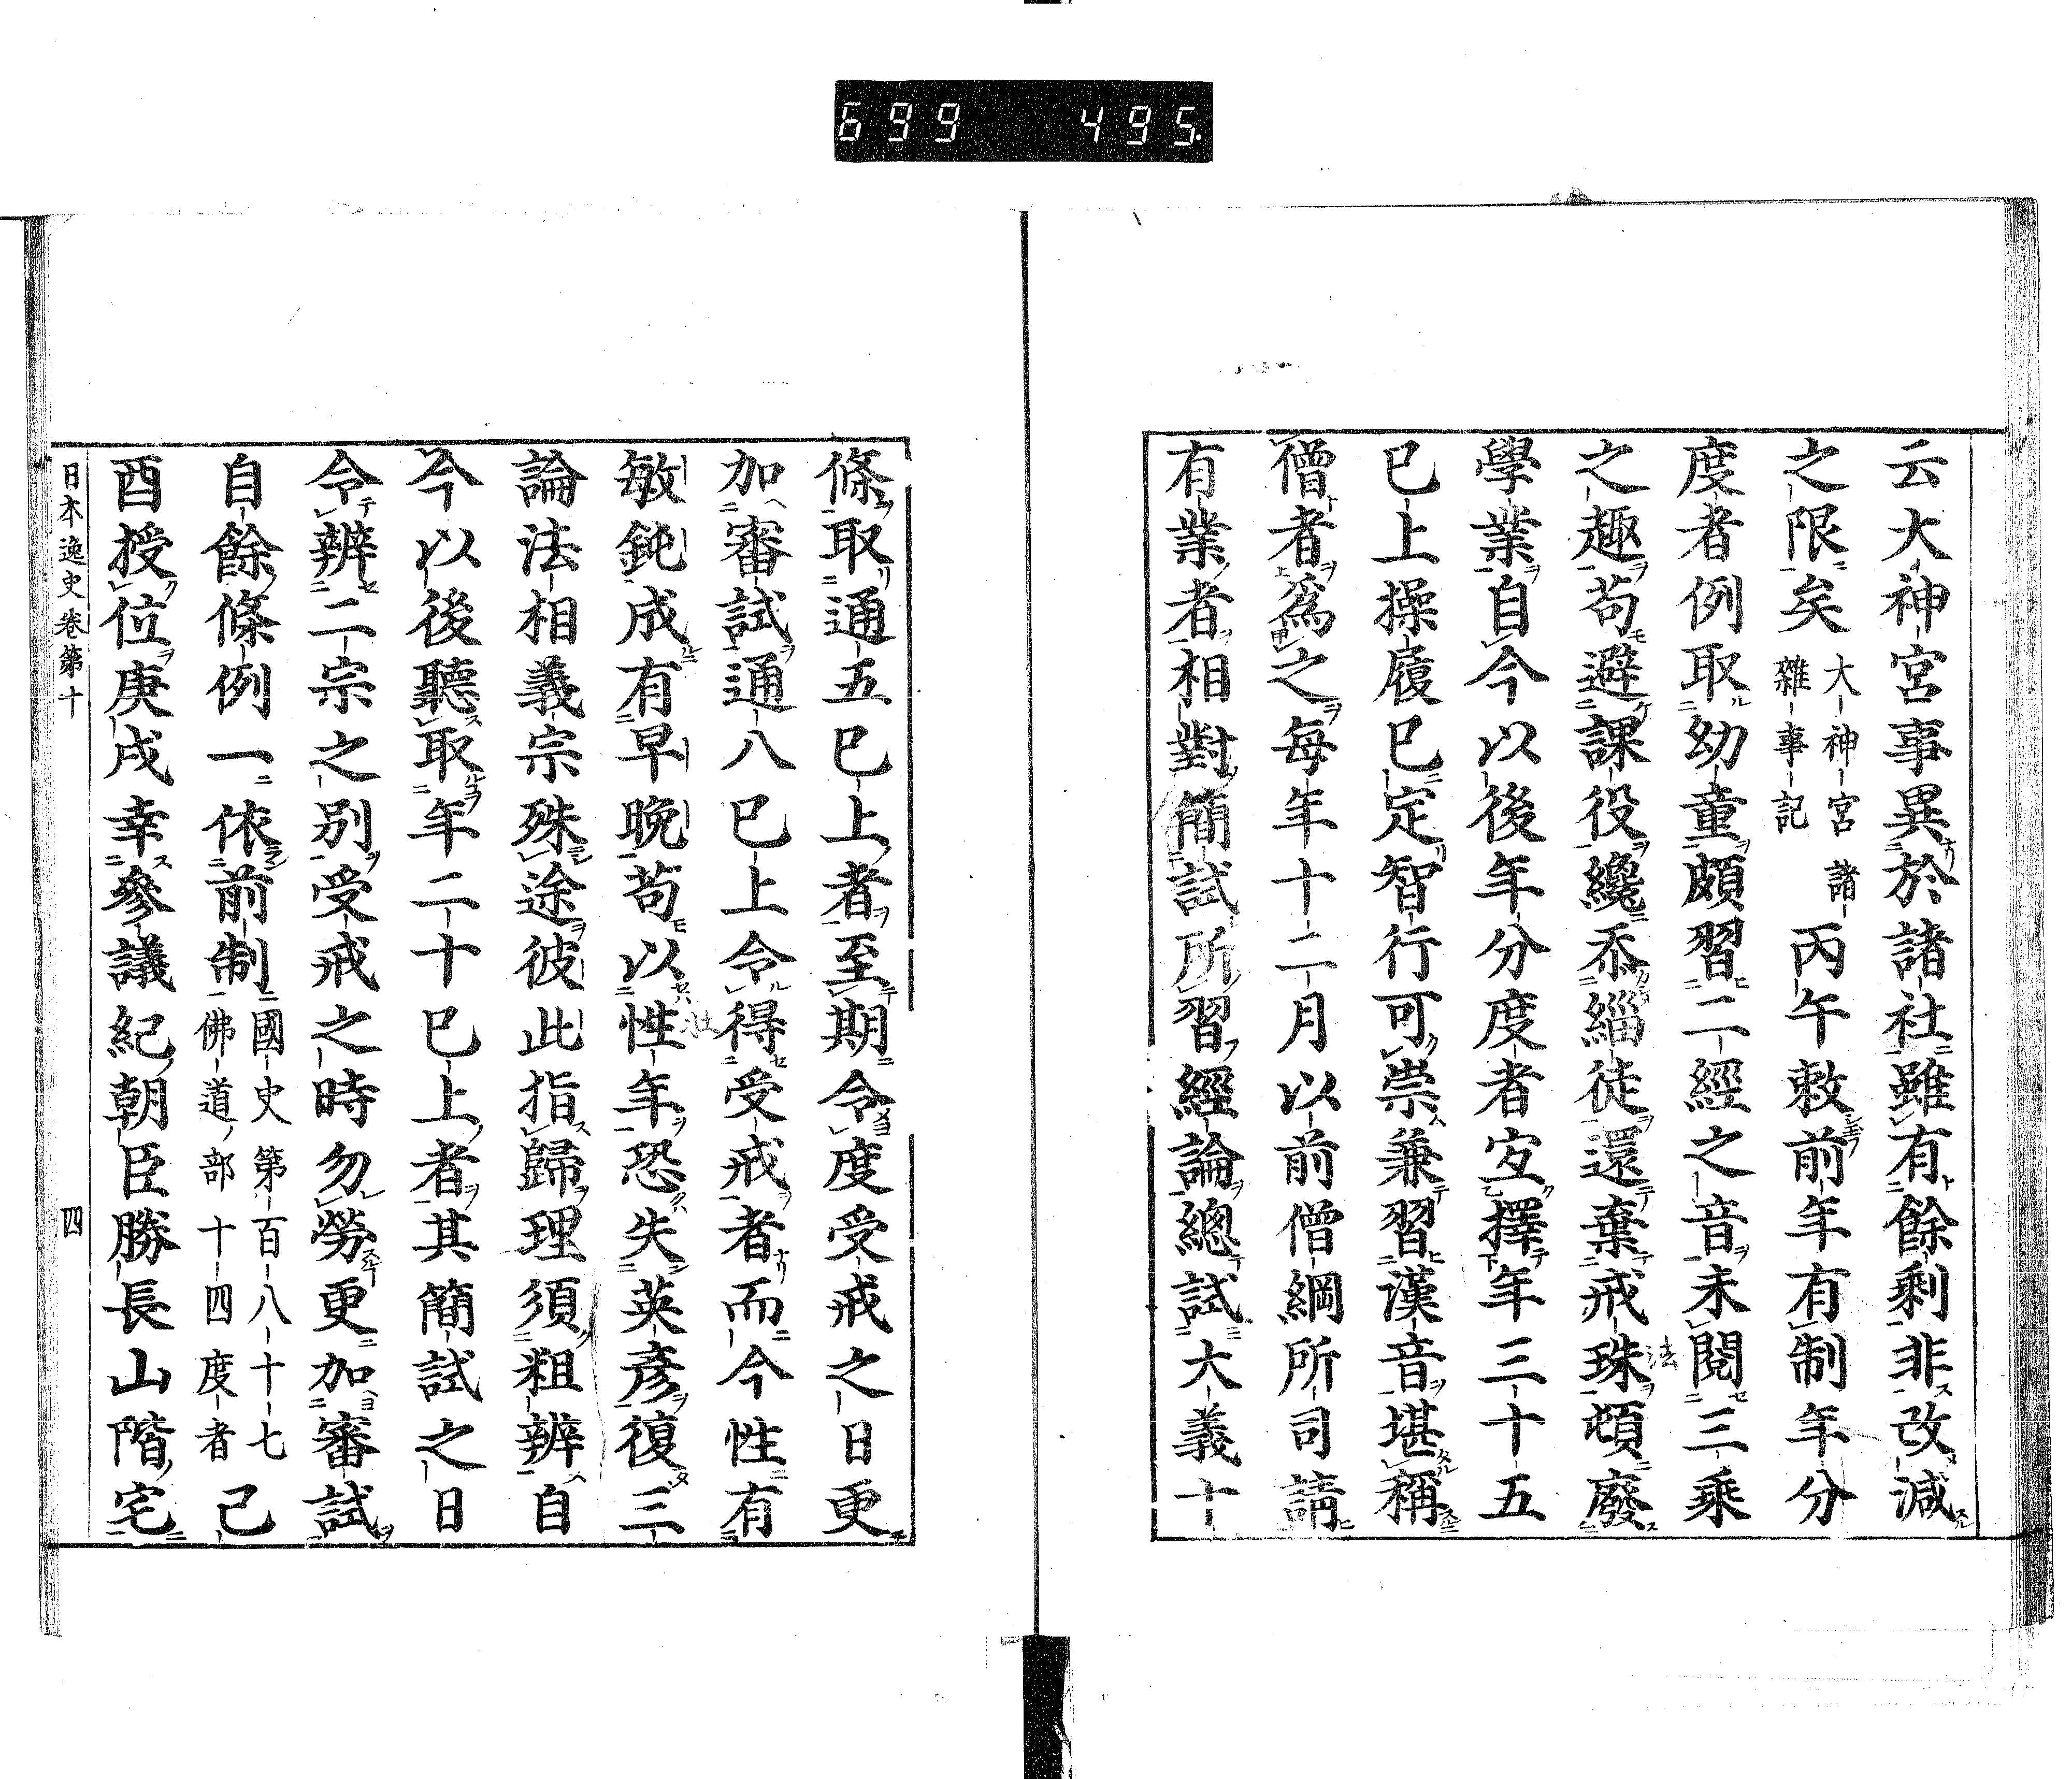 699 495
云大神宮事異於諸社雖有餘剰非改減
之限矣大神宮諸雜事記丙午敕前年有制年分
度者例取幼童頗習二經之音未閲三乘
之趣苟避課役纔忝緇徒還棄戒珠頓廢
學業自今以後年分度者宜擇年三十五
已上操履已定智行可崇兼習漢音堪稱
僧者爲之每年十二月以前僧綱所司請
有業者相對簡試所習經論總試大義十
條取通五已上者至期令度受戒之日更
加審試通八已上令得受戒者而今性有
敏鈍成有早晩苟以性年恐失英彥復三
論法相義宗殊途彼此指歸理須粗辨自
今以後聽取年二十已上者其簡試之日
令辨二宗之別受戒之時勿勞更加審試
自餘條例一依前制國史第百八十七佛道部十四度者己
酉授位庚戌幸參議紀朝臣勝長山階宅
日本逸史卷第十 四